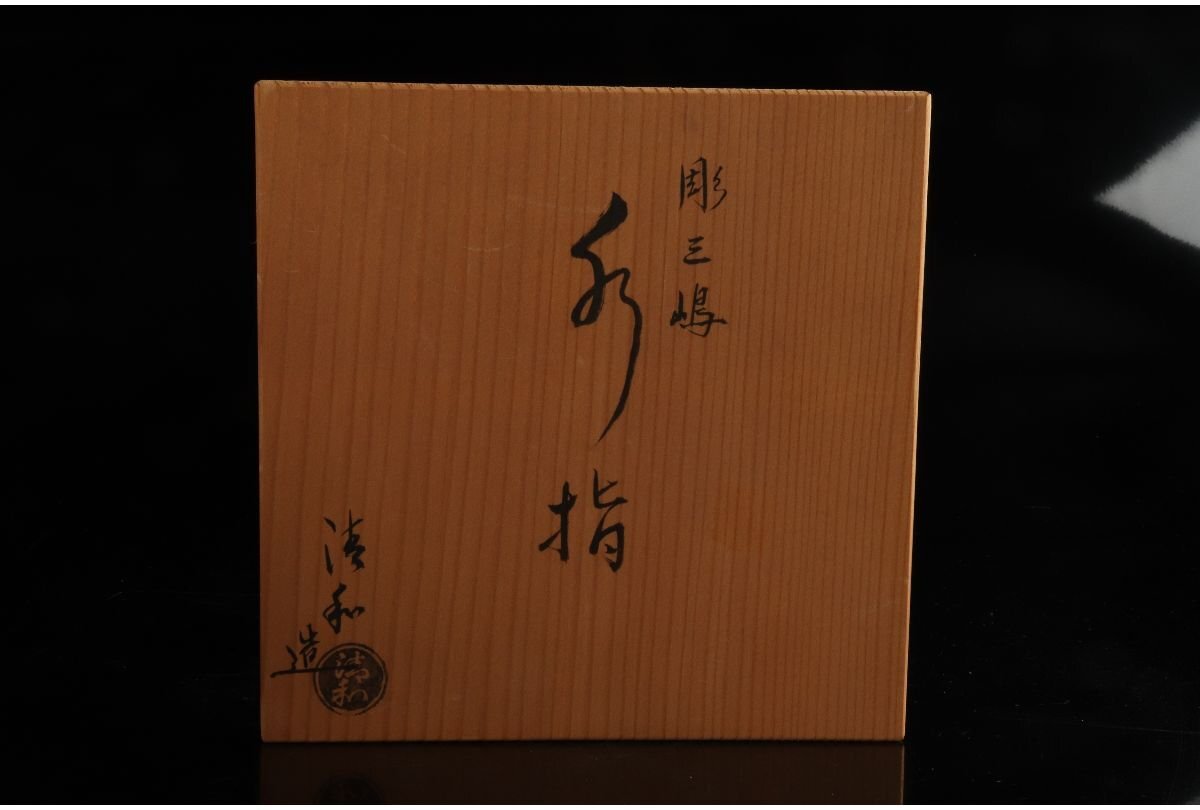 彫三嶋
水指
清和
造
清和